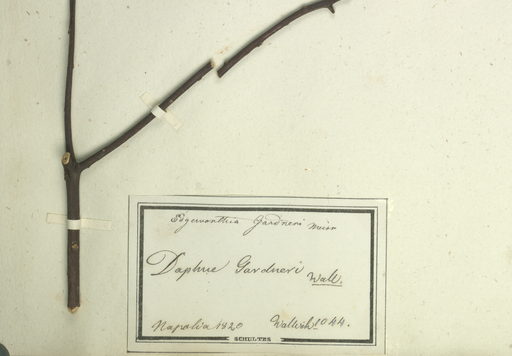 Edgeworthia Gardneri Meisn
Daphne Gardneri Wall.
Napalia 1820 Wallich 1044.
SCHULTES